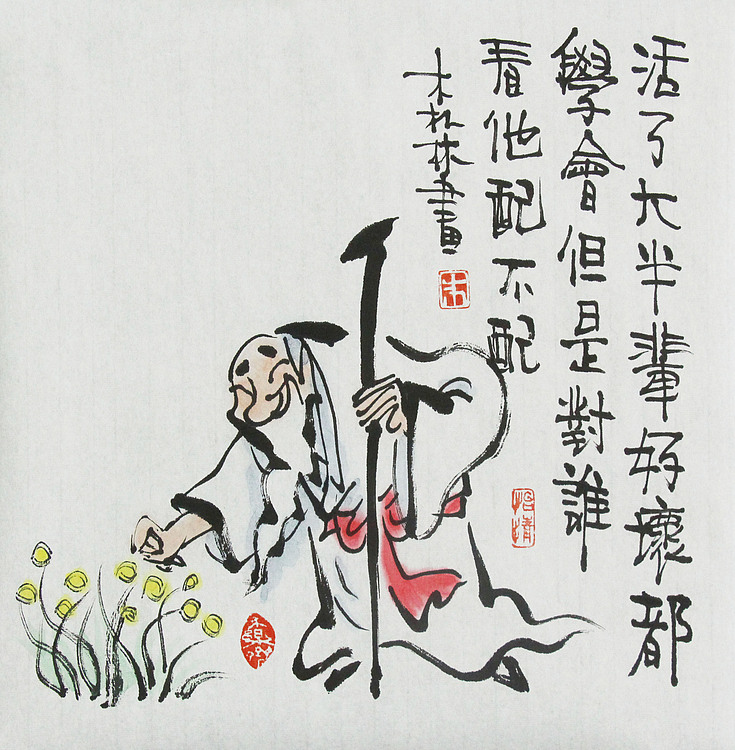 活了大半輩好壞都
學會但是對誰
看他配不配
朴林畫
怡情